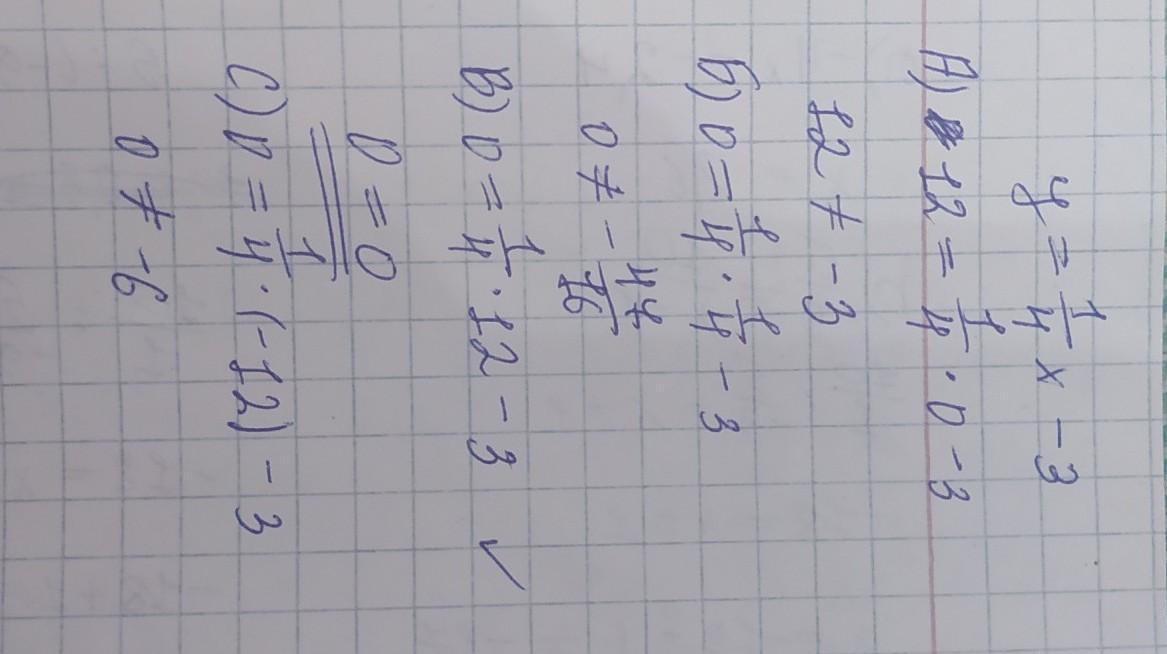 y = 1/4 x - 3
A) 12 = 1/4 · 0 - 3
12 ≠ -3
Б) 0 = 1/4 · 1/4 - 3
0 ≠ - 47/16
B) 0 = 1/4 · 12 - 3 ✓
0 = 0
C) 0 = 1/4 · (-12) - 3
0 ≠ -6